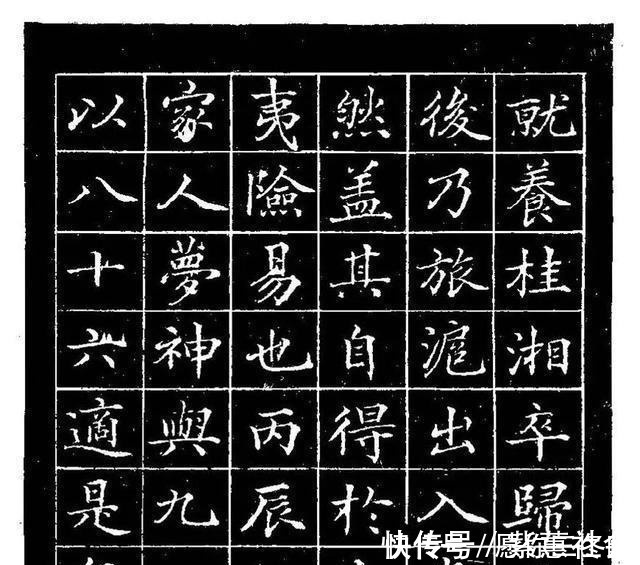 就養桂湘卒歸
後乃旅滬出入
然蓋其自得於
夷險易也丙辰
家人夢神與九
以八十六適是
快传号//